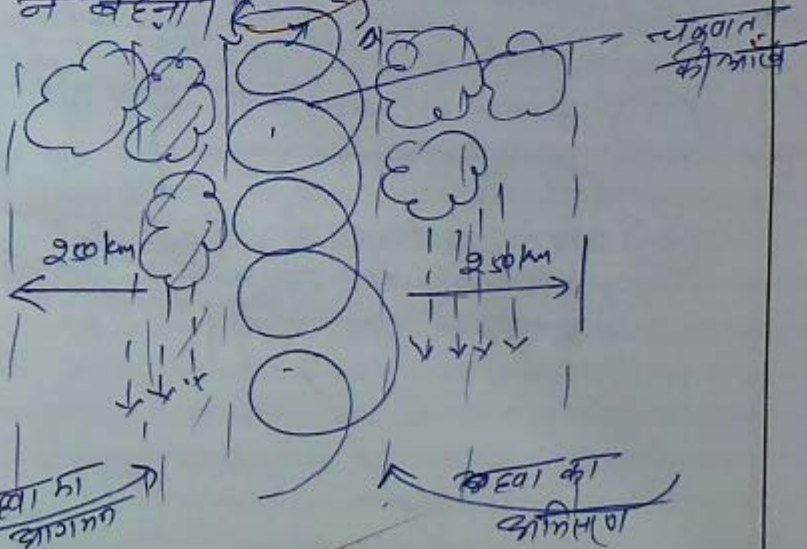 न बहना।
चक्रवात
की आंख
250 km
250 km
हवा का
आगमन
हवा का
अभिसरण